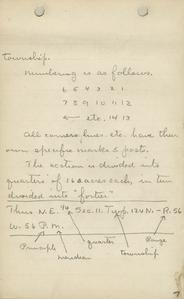 township.
numbering is as follows.
6 5 4 3 2 1
7 8 9 10 11 12
← etc. 14 13
All corners, lines etc. have their
own specific marks & posts.
The section is divided into
quarters of 160 acres each, in turn
divided into "forties"
Thus N.E. 1/4, Sec. 11. Twp. 124 N. - R. 56
W. 5th P.M.
Principle
meridian
quarter
township
Range